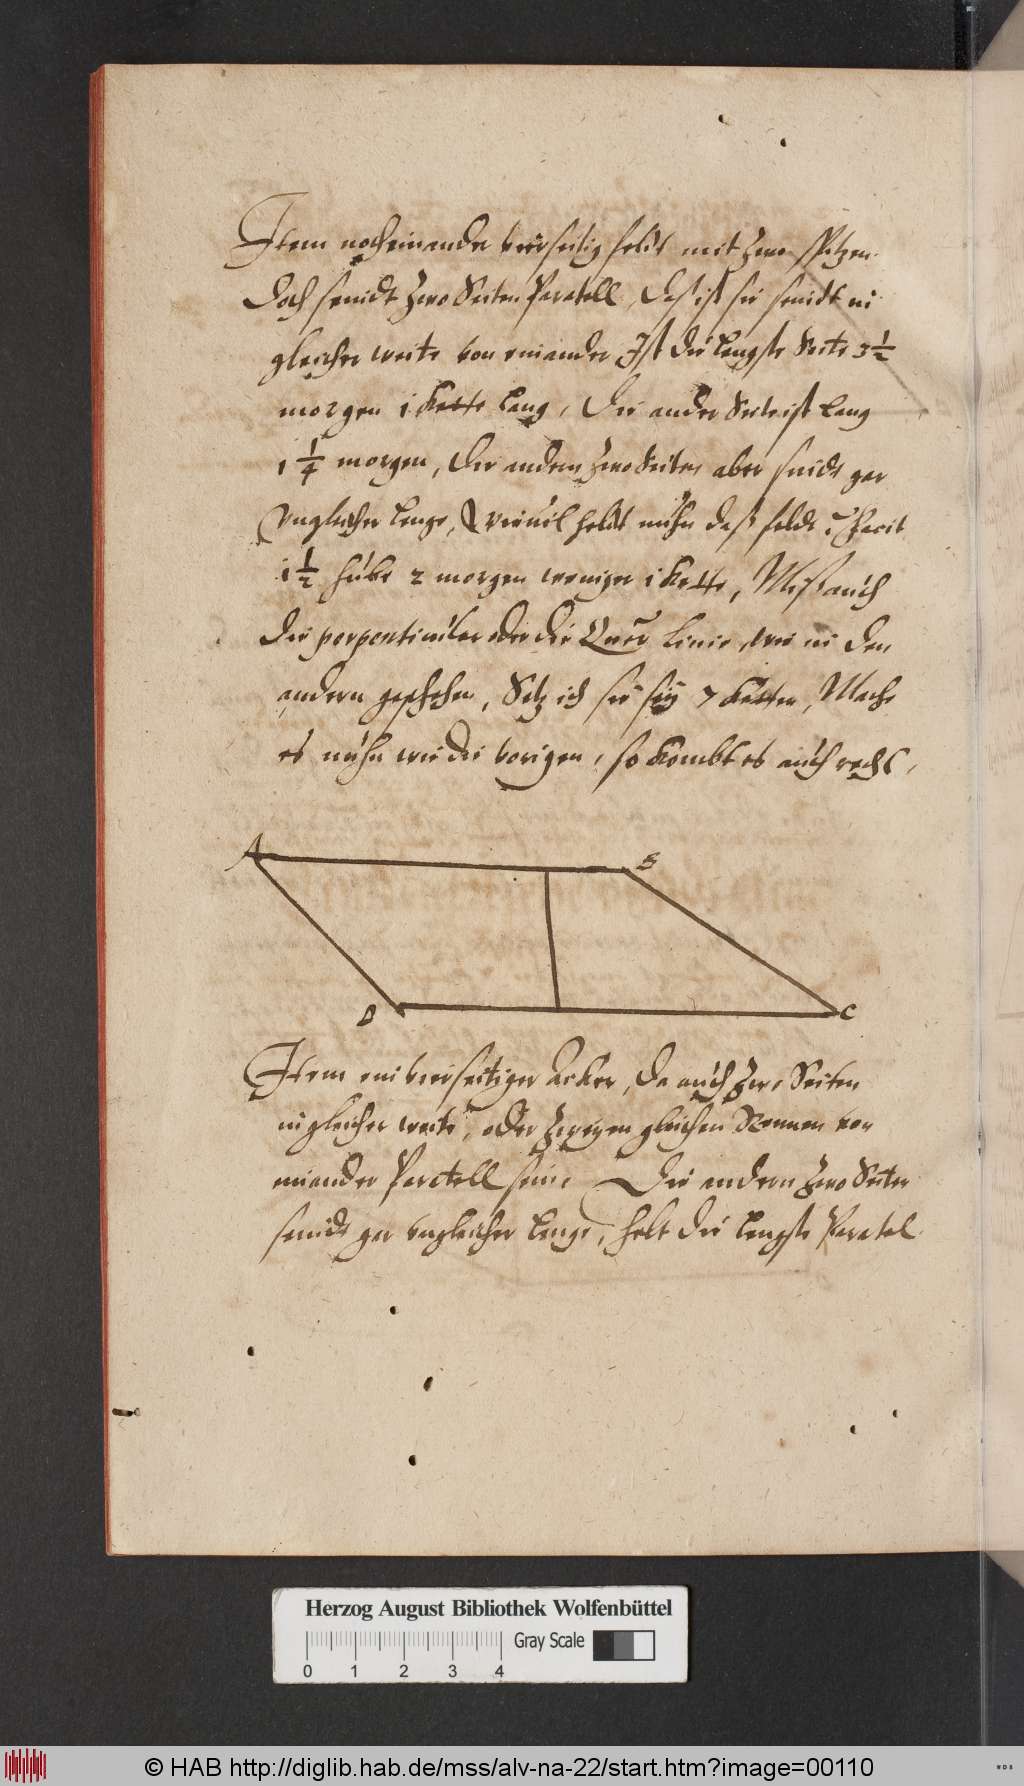 Item noch ein ander vierseitig feldt mit zwo Spitzen.
Doch seindt zwo Seiten Paratell, Daß ist sie seindt in
gleicher weite von einander Ist die Lengste Seite 3 1/2
morgen 1 Kette Lang, Die ander Seite ist Lang
1 1/4 morgen, Die andern zwo Seiten aber seindt gar
Vngleicher Lenge, Wieuil heldt nuhn daß feldt? Facit
1 1/2 hube 2 morgen weniger 1 Kette, Miß auch
die perpenticuler oder die Quer Linie, wie in den
andern geschehen, Setz ich sie seÿ 7 Ketten, Mache
es nuhn wie die vorigen, so Kombt es auch recht,
A
B
D
C
Item ein vierseitiger Acker, da auch zwo Seiten
in gleicher weite, oder gleichen von
einander Paratell sein, Die andern zwo Seiten
seindt gar vngleicher Lenge, helt die Lengste Paratel
Herzog August Bibliothek Wolfenbüttel
Gray Scale
0 1 2 3 4
© HAB http://diglib.hab.de/mss/alv-na-22/start.htm?image=00110